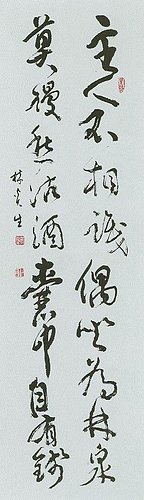 主人不相識偶坐為林泉
莫謾愁沽酒囊中自有錢